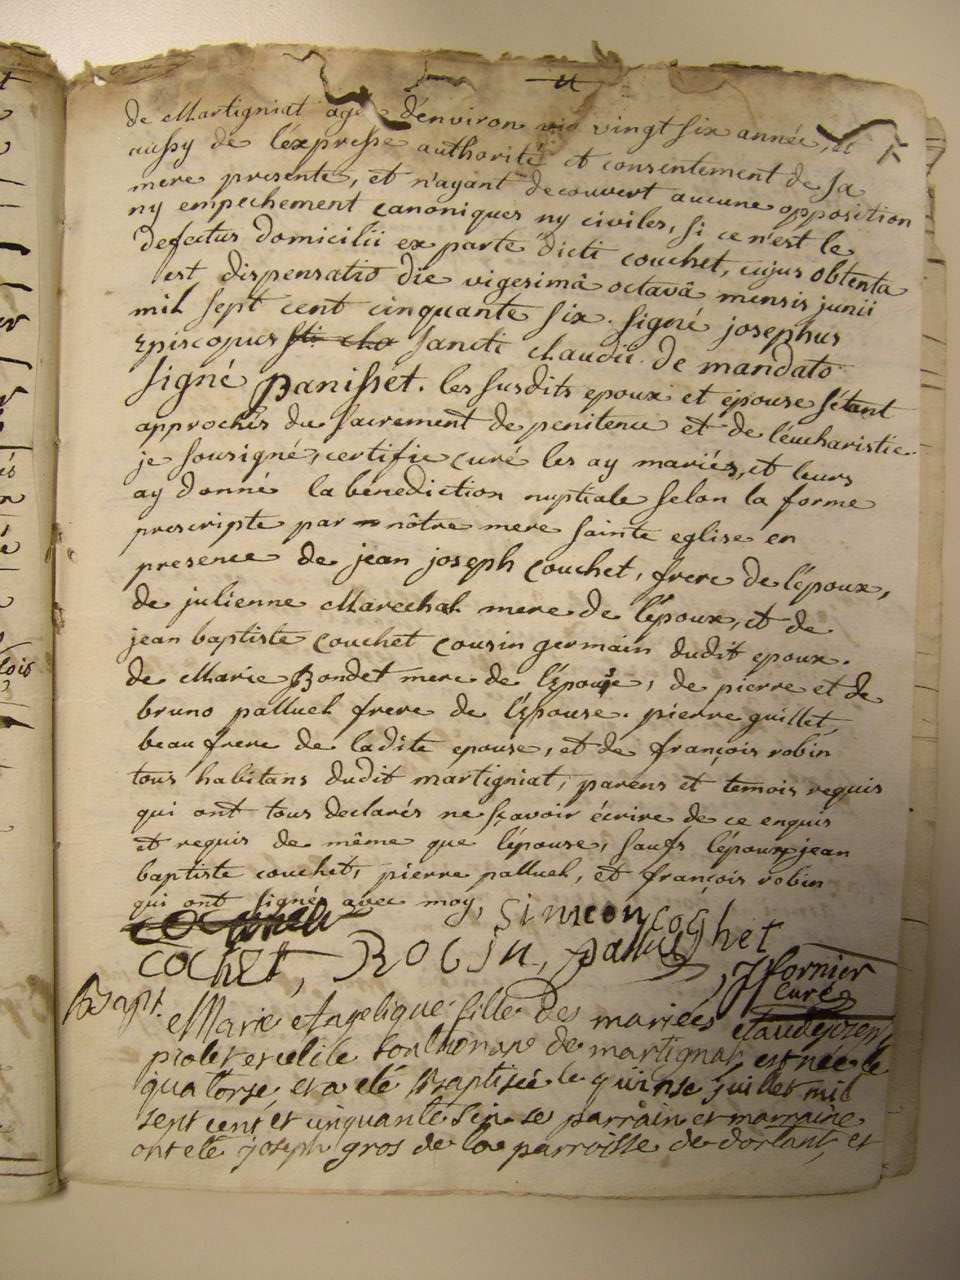 de Martigniat agé d'environ vingt six année, et
aussy de l'éxpresse authorité et consentement de sa
mere presente, et n'ayant decouvert aucune opposition
ny empechement canoniques ny civiles, si ce n'est le
defectus domicilii ex parte dicti couchet, cujus obtenta
est dispensatio die vigesimâ octavâ mensis junii
mil sept cent cinquante six. signé josephus
Episcopus sancti claudii. de mandato
signé Panisset. les susdits epoux et épouse s'étant
approchés du sacrement de penitence et de l'éucharistie
je sousigné, certifie curé les ay mariés, et leurs
ay donné la bénediction nuptiale selon la forme
prescripte par nôtre mere sainte eglise en
presence de jean joseph couchet, frere de l'époux,
de julienne Marechal mere de l'époux, et de
jean baptiste couchet cousin germain dudit epoux.
de Marie Bondet mere de l'épouse, de pierre et de
bruno palluel frere de l'épouse. pierre guillet
beau frere de ladite epouse, et de françois robin
tous habitans dudit martigniat, parens et temois requis
qui ont tous declarés ne sçavoir écrire de ce enquis
et requis de même que l'épouse, saufs l'époux, jean
baptiste couchet, pierre palluel, et françois robin
qui ont signé avec moy, simeon coghet
cochet, Robin, palluel
Jfornier
curé
Bapt.
Marie Angelique fille des mariées
de martignat, est née le
quatorse, et a eté Baptisée le quinse juillet mil
sept cent et cinquante six se parrain et marraine
ont eté joseph gros de la parroisse de dortant, et